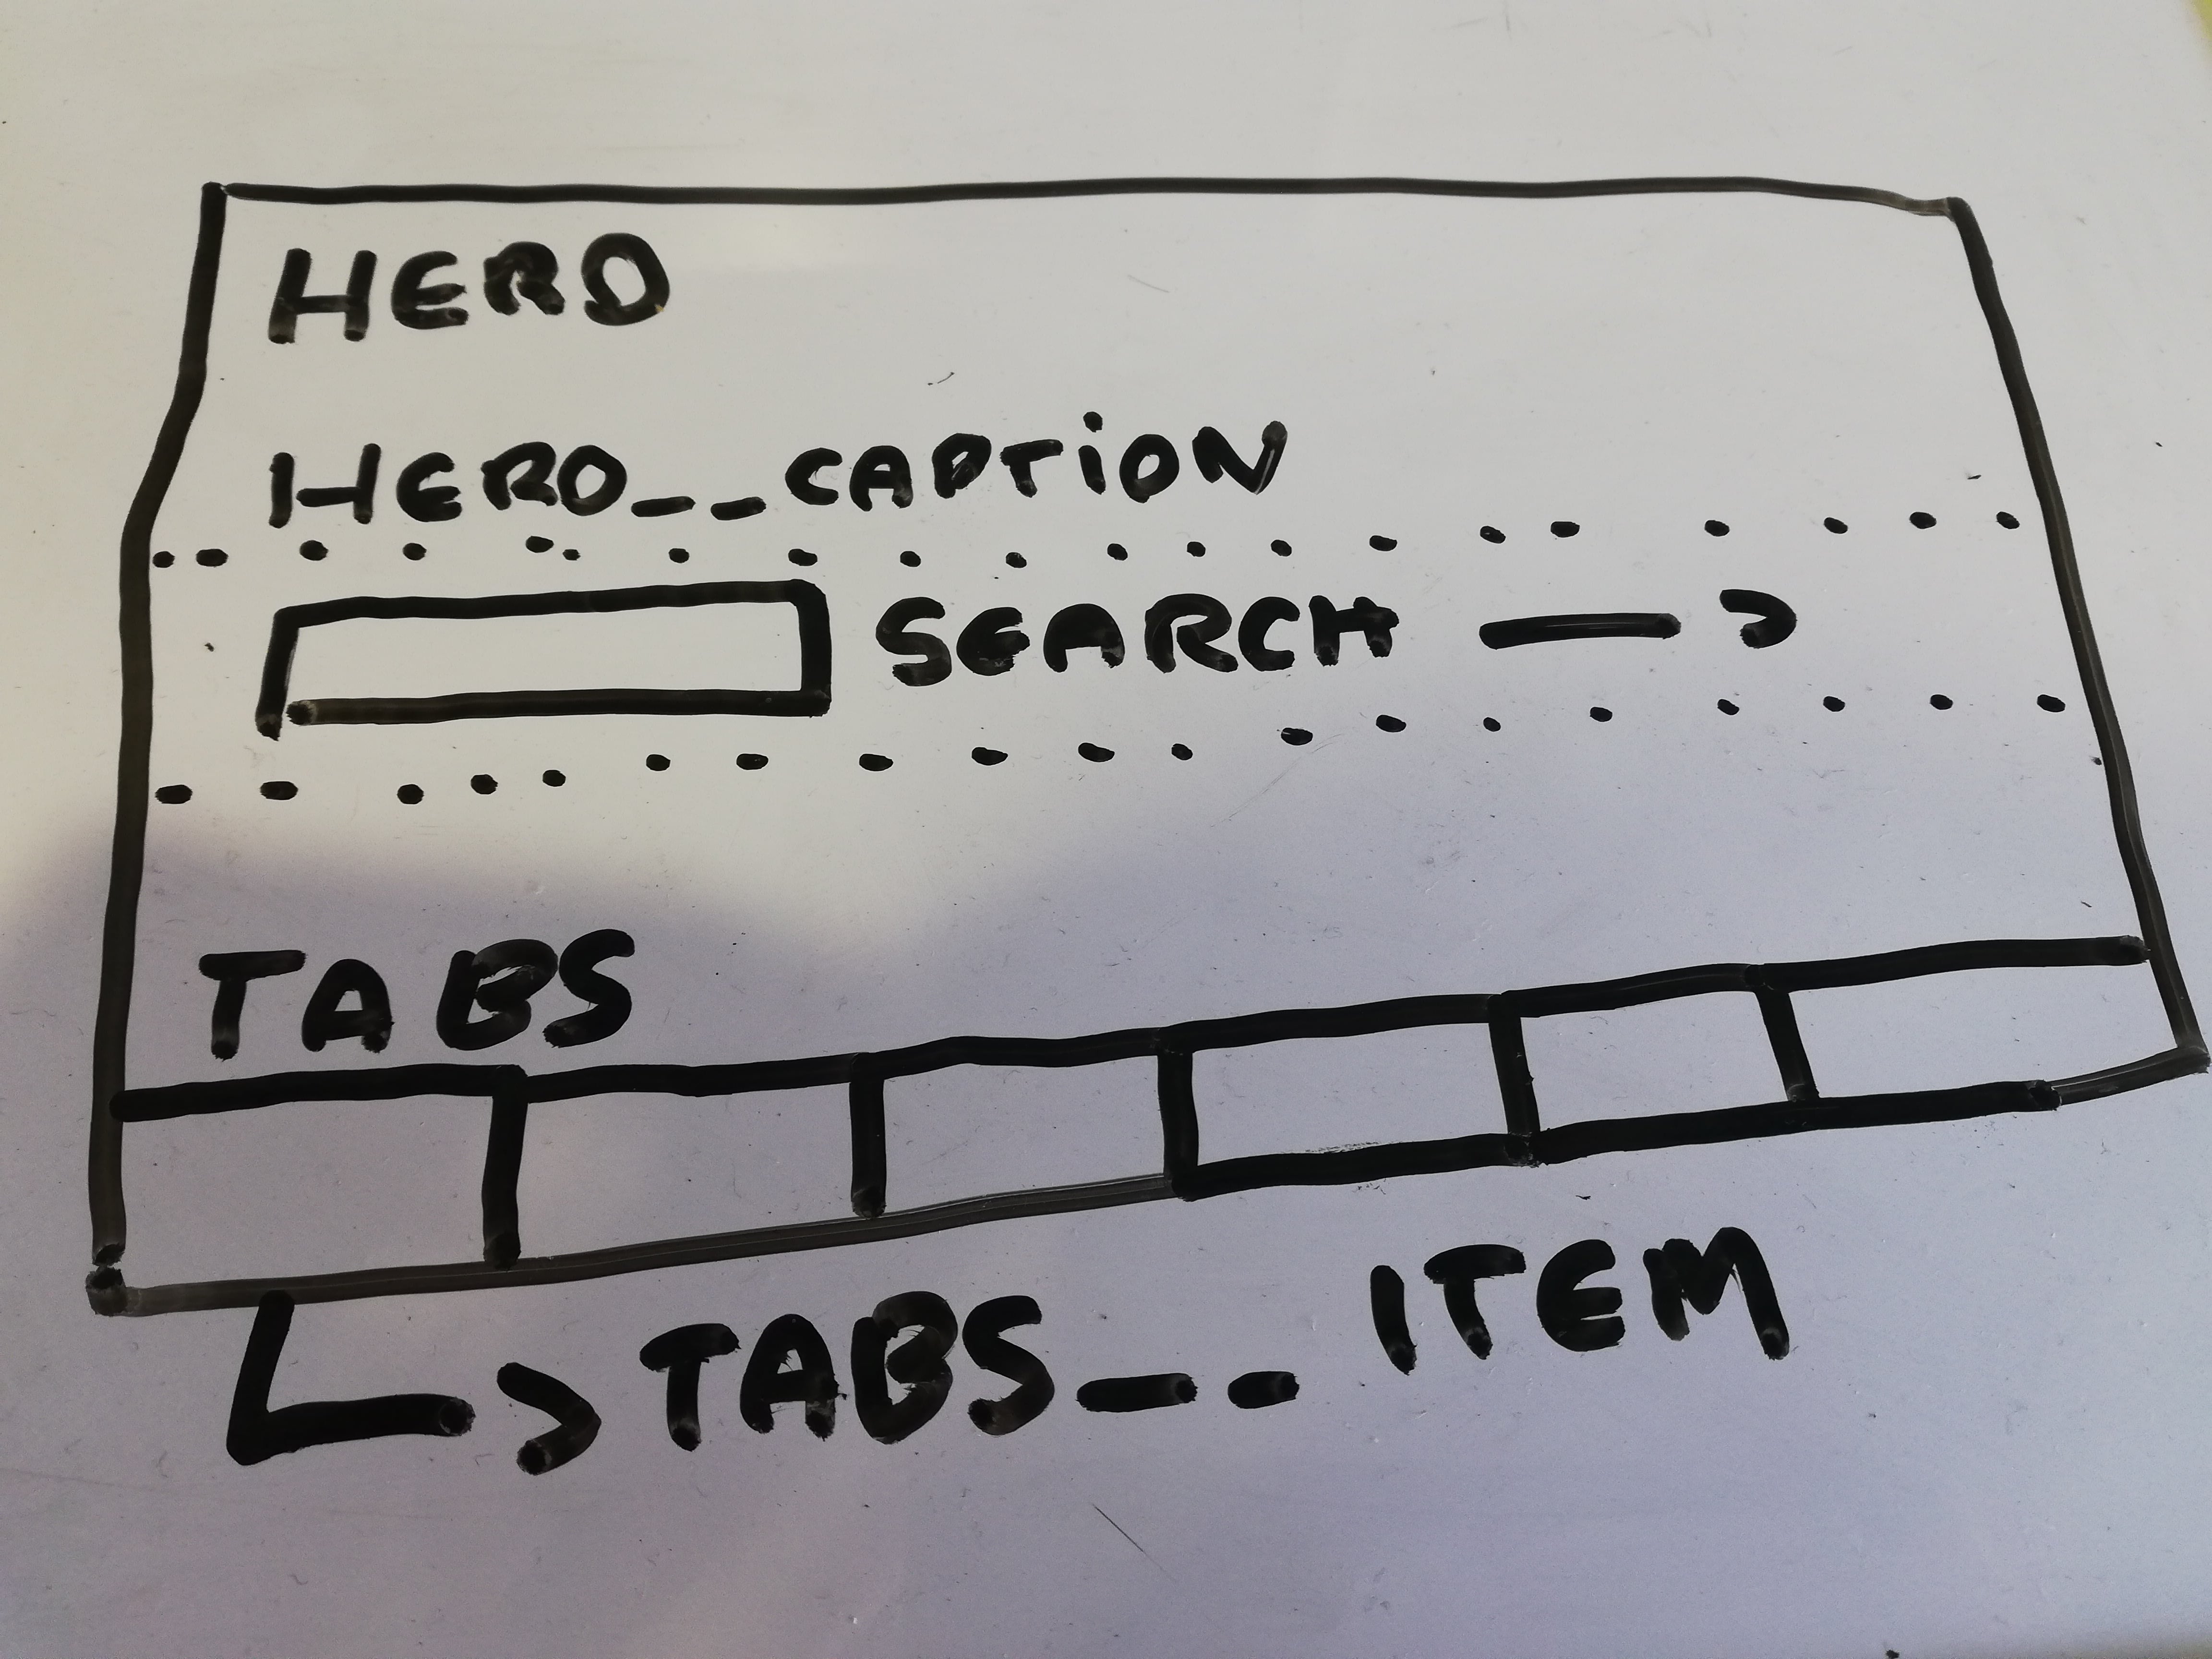 HERO
HERO__CAPTION
SEARCH —>
TABS
TABS__ITEM